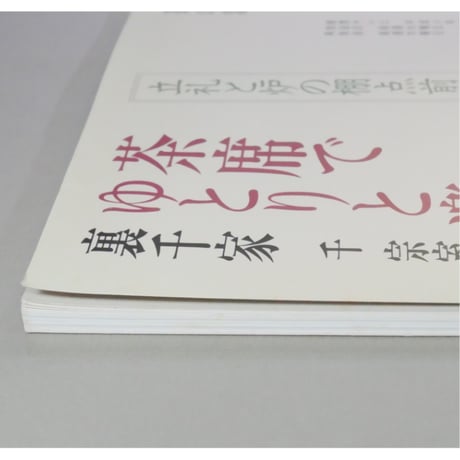 立礼と炉の棚点前
茶席で
ゆとりと
裏千家 千宗室